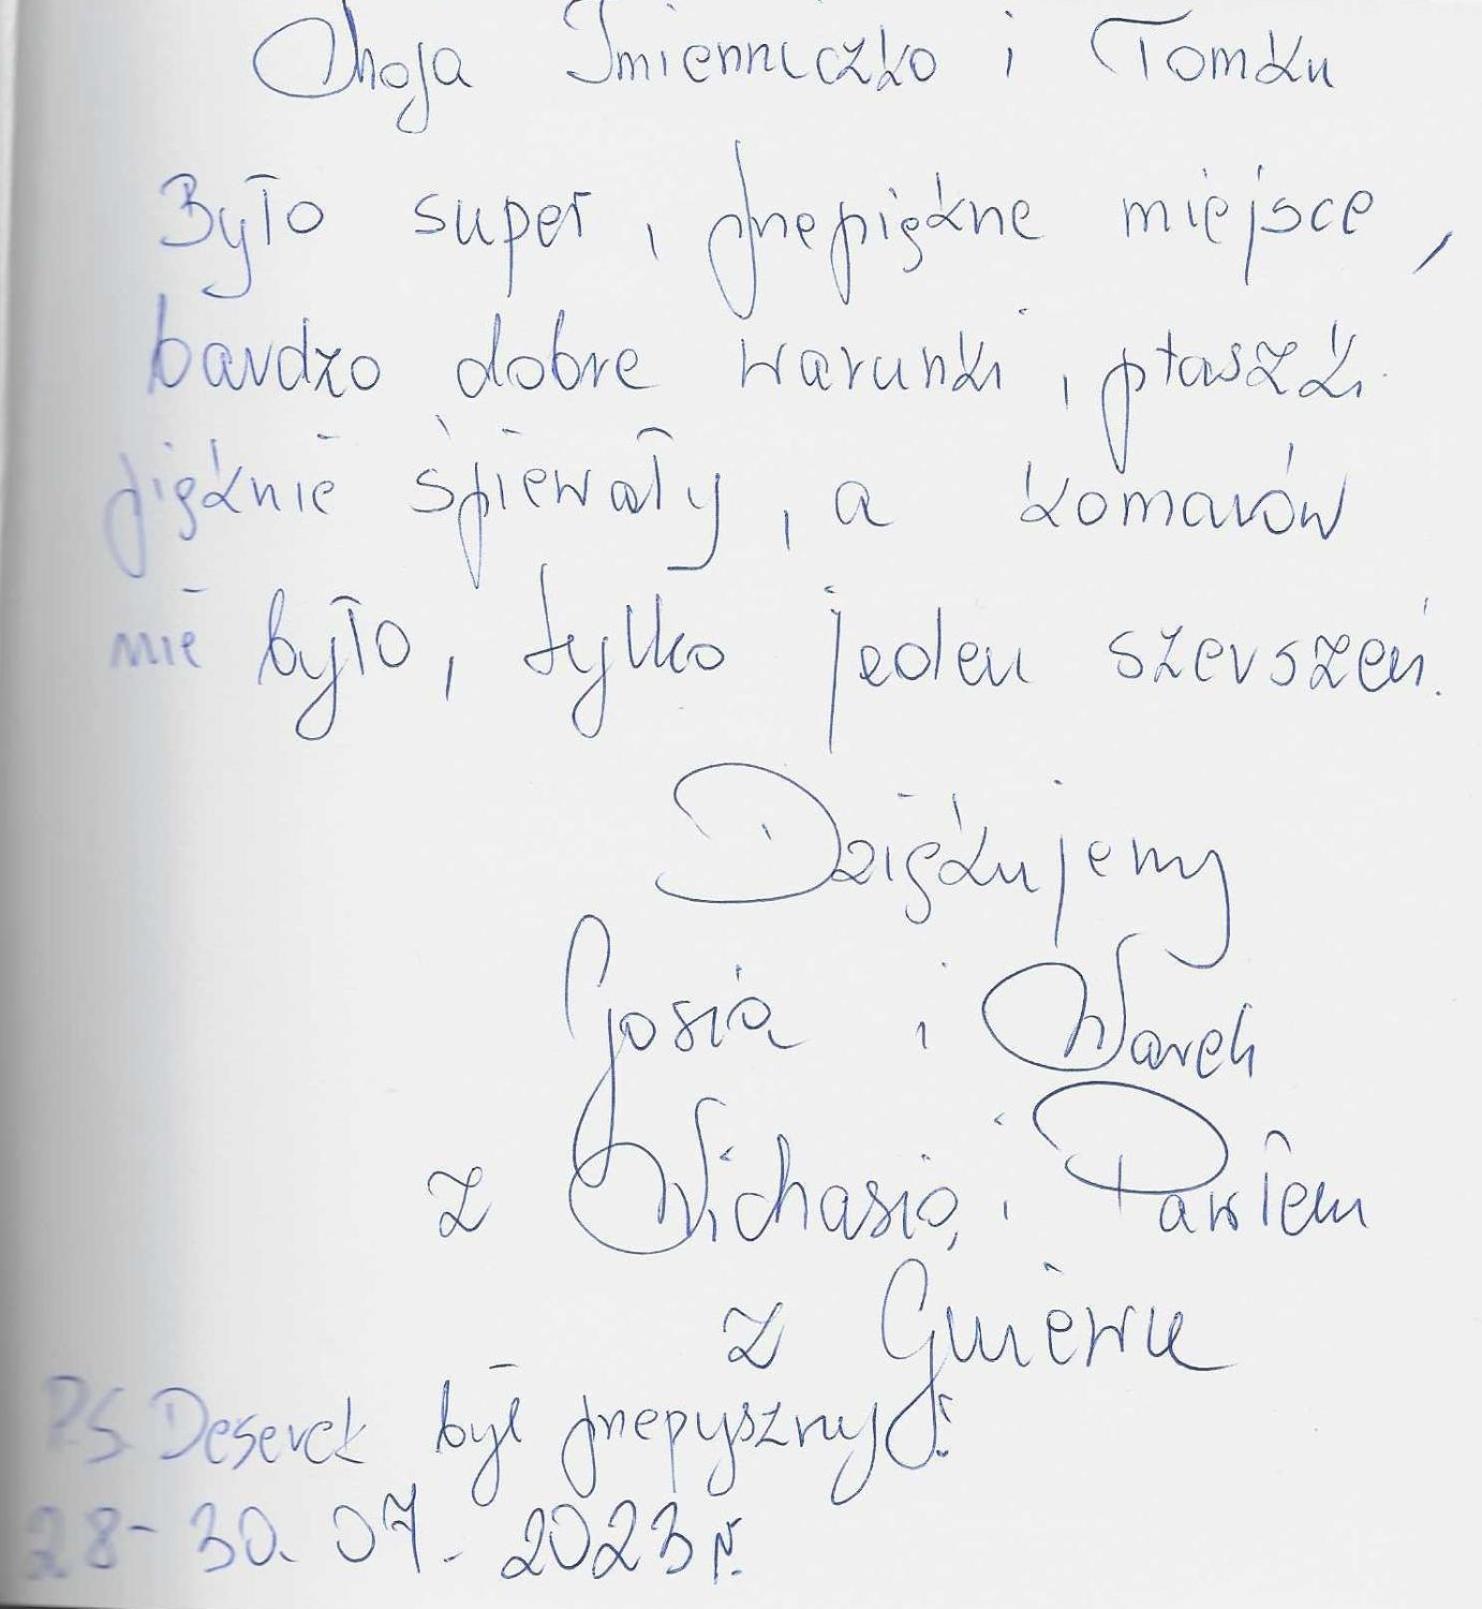 Moja Imienniczko i Tomku
Było super, przepiękne miejsce,
bardzo dobre warunki, ptaszki
pięknie śpiewały, a komarów
nie było, tylko jeden szerszeń.
Dziękujemy
Gosia i Marek
z Michasią i Pawłem
z Gniewu
P.S. Deserek był przepyszny!
28-30.07.2023 r.